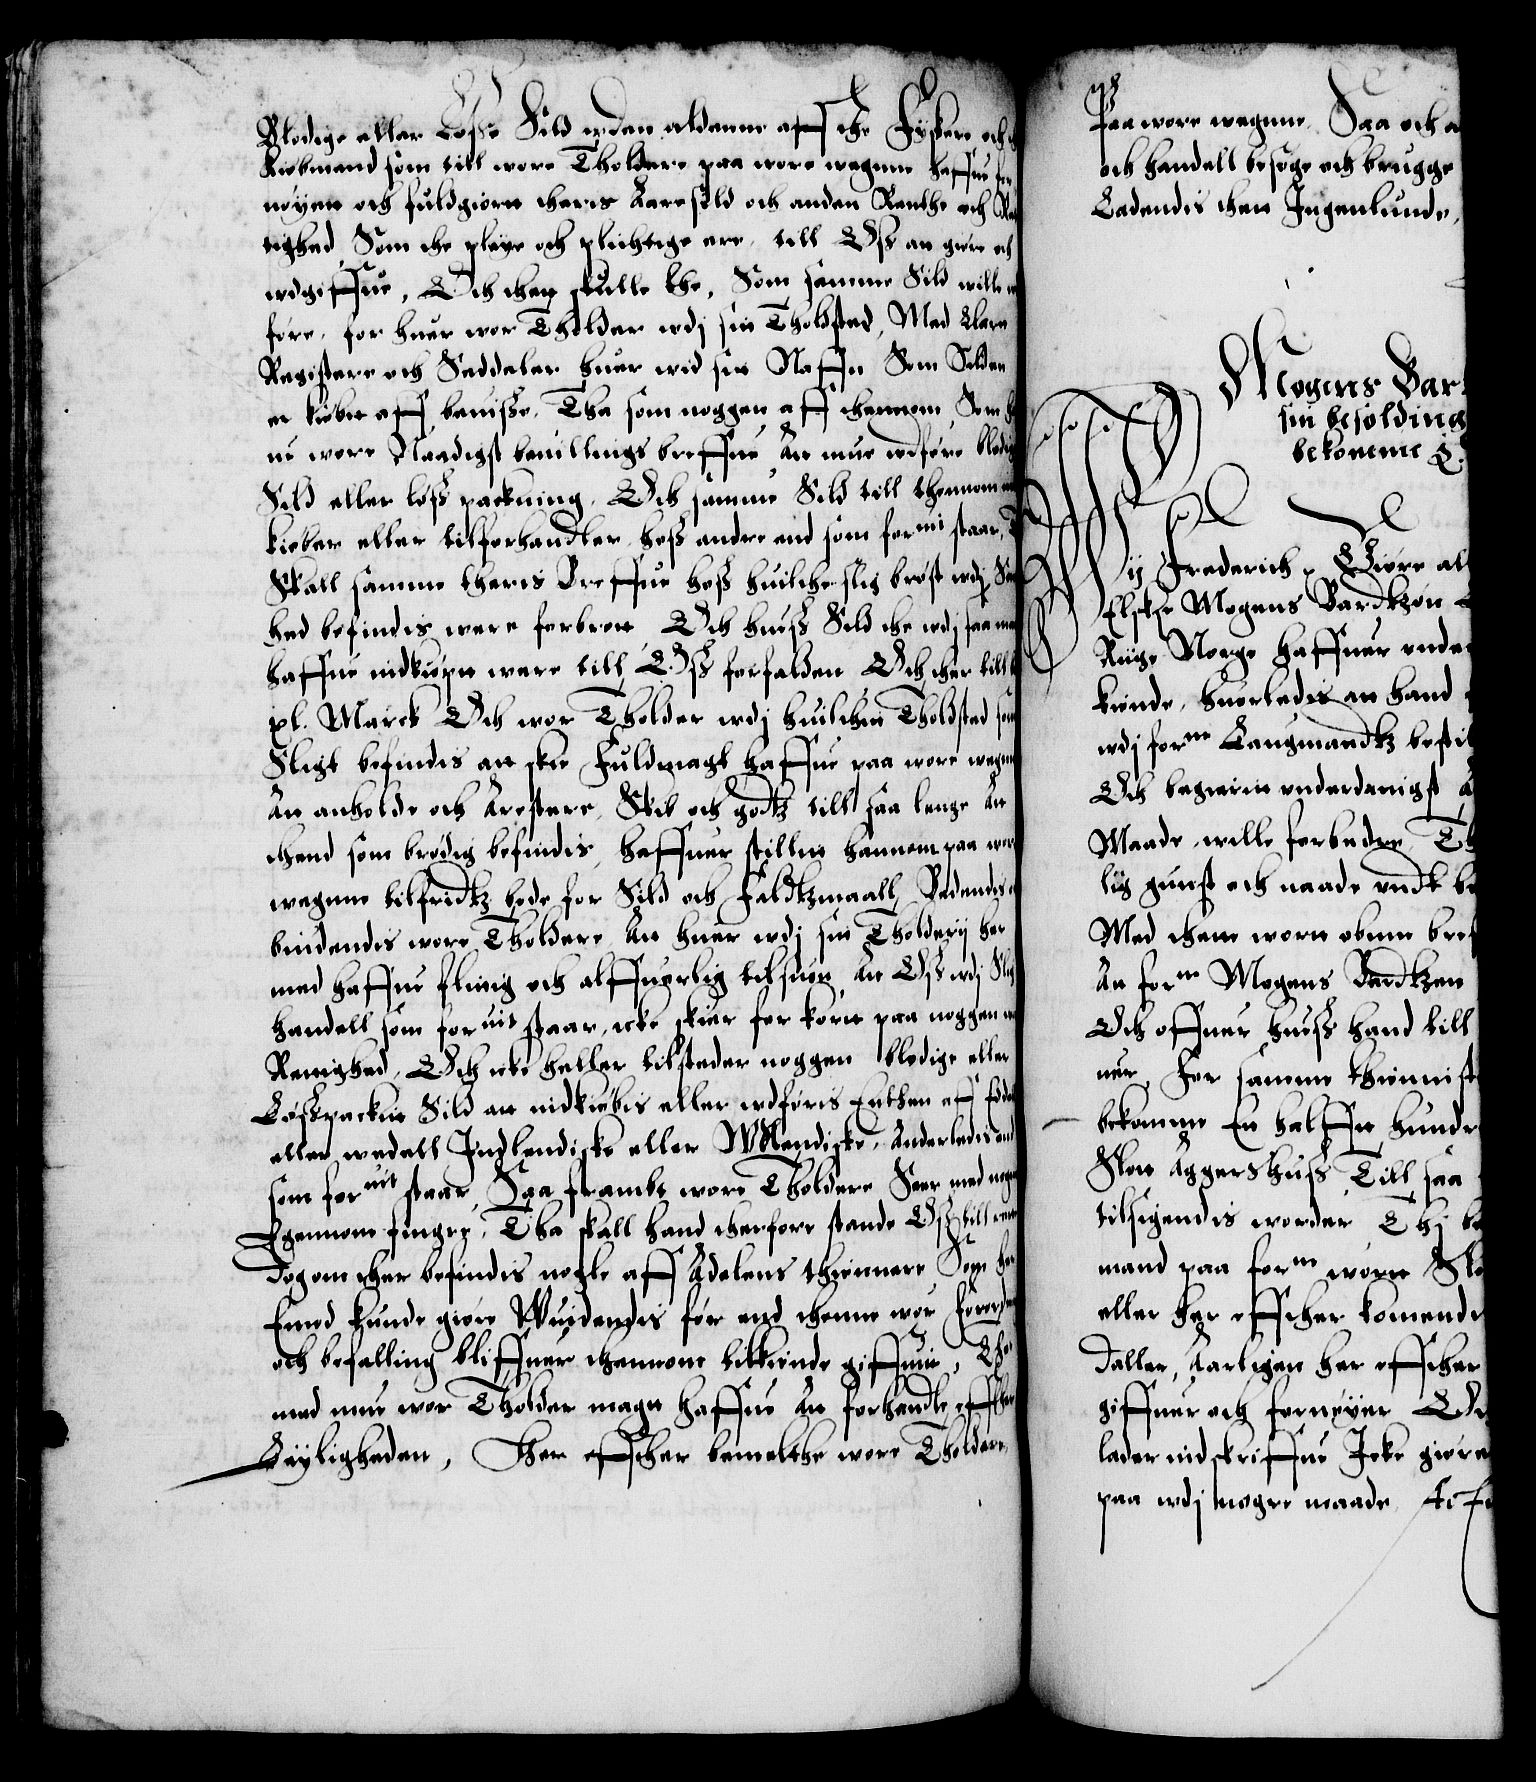 Blodige eller Løsse Sild wden aldenne aff the Fyskere och
Kiøbmend som till wore Tholdere paa wore wegnne haffue for
nøyen och fuldgiorn theris Kare sild och anden Renthe och
tighed Som the pleye och plichtige ere, till Oss att giøre och
wdgiffue, Och ther skulle the, Som samme Sild wille
føre, for huer wor Tholder wdj sin Tholdsted, Med klare
Register och Seddeler huer wid sin Naffn Som Silden
er kiøbtt aff, beuisse, Tha som noggen aff thennom Som
nu wore Naadigst beuillings breffue An mue wdføre blodig
Sild eller løss packning, Och samme Sild till thennom
kiøber eller tilforhandler, hoss andre end som foruit staar,
Skall samme theris Breffue hoss huilcke slig brøst wdj
hed befindis were forbrott, Och huess Sild the wdj saa
haffue indkiøptt were till Oss forfalden Och ther till
xl. Marck Och wor Tholder wdj huilchen Tholdsted som
Sligt befindis att skee Fuldmagt haffue paa wore wegne
An anholde och Arestere, Skib och godtz till saa lenge An
thend som brødig befindis, haffuer stillett hannem paa wore
wegnne tilfridtz bode for Sild och Faldtzmaall, Bedendis
bindendis wore Tholdere, An huer wdj sin Tholderij her
med haffue flittig och alffuerlig tilsiuen, An Oss wdj Slig
handell som foruit staar, icke skier for kortt paa noggen
Rettighed, Och icke heller tilsteder noggen blodige eller
Løsspackett Sild att indkiøbis eller wdføris Enthen aff
eller wedell Indlendiske eller Wdlendiske, Anderledis end
som foruit staar, Saa frambt wore Tholdere Seer med nogen
Egennom fingre, Tha skall hand therfore stande Oss till
Dog om ther befindis nogle aff Adelens thiennere, Som her
Emod kunde giøre Wuidendis før end thenne wor
och befalling bliffuer thennom tilkiende giffuit,
med mue wor Tholder magtt haffue An forhandle effther
Leyligheden, Ther effther bemelthe wore Tholdere
Paa wore wegnne, Saa och a
och handell besøge och brugge
Ladendis thett Ingenlunde,
Mogens Bar
sin besolding
bekomme
Wij Frederich Giøre all
Elske Mogens Bardtzøn
Riige Norge haffuer vnde
kiende, huorledis att hand
wdj form Laugmandtz bestil
Och begierer vnderdanigst
Maade wille forbedre, Th
lig gunst och naade vndt be
Med thette wortt obnne bref
An form Mogens Bardtzen
Och offuer huess hand till
uer, For samme thiennist
bekomme En halffue hundr
Slott Aggershuss Till saa
tilsigendis worder Thj be
mand paa form wortt Slo
eller her effther komende
Daller, Aarligen her effther
giffuer och fornøyer
lader indskriffue Icke giøre
paa wdj nogre maade